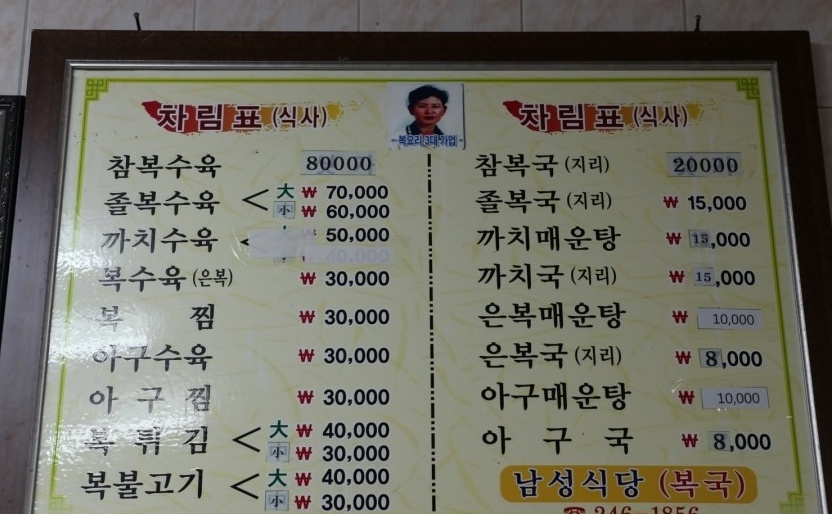 차림표 (식사)
참복수육 80000
졸복수육 < 大 ₩ 70,000
小 ₩ 60,000
까치수육 ₩ 50,000
복수육 (은복) ₩ 30,000
복 찜 ₩ 30,000
아구수육 ₩ 30,000
아 구 찜 ₩ 30,000
복 튀 김 < 大 ₩ 40,000
小 ₩ 30,000
복불고기 < 大 ₩ 40,000
小 ₩ 30,000
-복요리 3대 가업-
차림표 (식사)
참복국 (지리) 20000
졸복국 (지리) ₩ 15,000
까치매운탕 ₩ 15,000
까치국 (지리) ₩ 15,000
은복매운탕 ₩ 10,000
은복국 (지리) ₩ 8,000
아구매운탕 ₩ 10,000
아 구 국 ₩ 8,000
남성식당 (복국)
☎ 246-1856